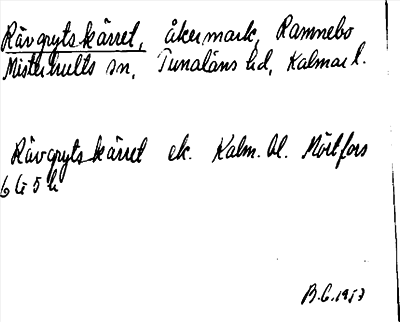 Rävgrytskärret, åkermark, Ramnebo
Misterhults sn, Tunaläns hd, Kalmar l.
Rävgrytskärret ek. Kalm. bl. Mörtfors
6 G 5 h
B.G. 1953